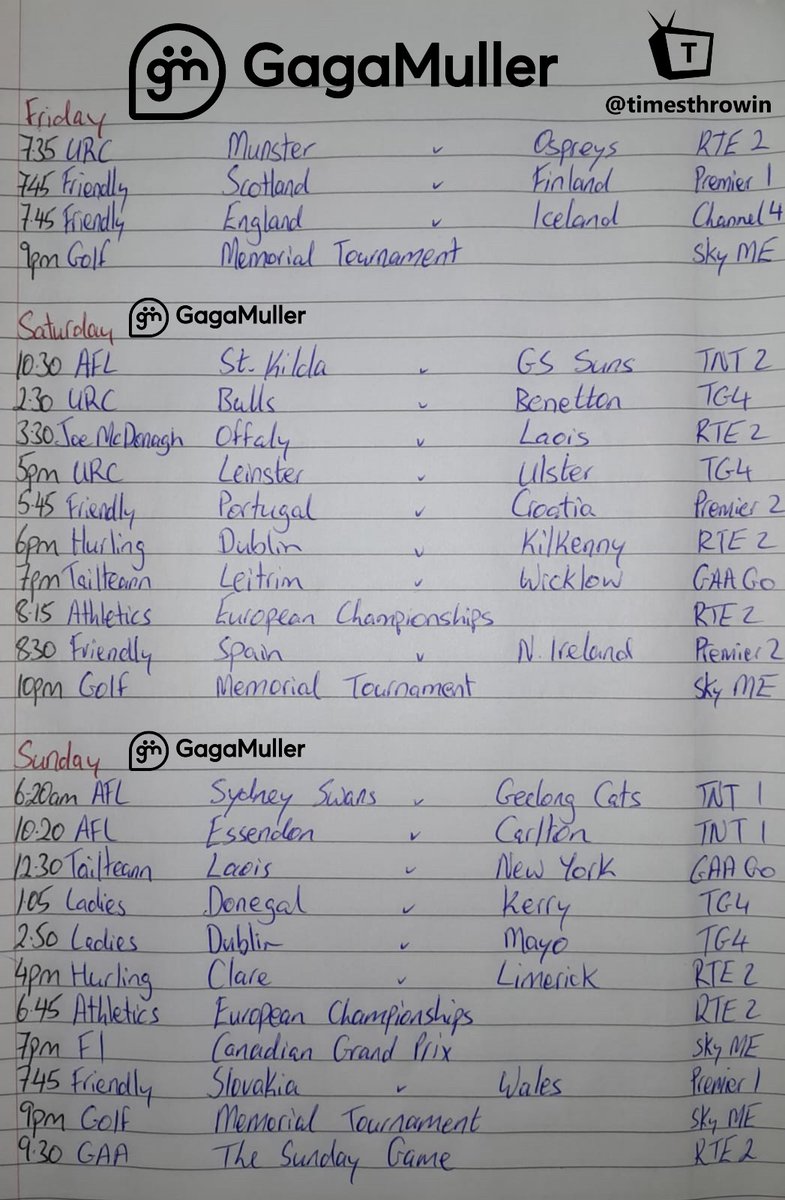 gm GagaMuller
T
@timesthrowin
Friday
7.35 URC Munster v Ospreys RTE 2
7.45 Friendly Scotland v Finland Premier 1
7.45 Friendly England v Iceland Channel 4
9pm Golf Memorial Tournament Sky ME
Saturday gm GagaMuller
10.30 AFL St. Kilda v GS Suns TNT 2
2.30 URC Bulls v Benetton TG4
3.30 Joe McDonagh Offaly v Laois RTE 2
5pm URC Leinster v Ulster TG4
5.45 Friendly Portugal v Croatia Premier 2
6pm Hurling Dublin v Kilkenny RTE 2
7pm Tailteann Leitrim v Wicklow GAA Go
8.15 Athletics European Championships RTE 2
8.30 Friendly Spain v N. Ireland Premier 2
10pm Golf Memorial Tournament Sky ME
Sunday gm GagaMuller
6.20am AFL Sydney Swans v Geelong Cats TNT 1
10.20 AFL Essendon v Carlton TNT 1
12.30 Tailteann Laois v New York GAA Go
1.05 Ladies Donegal v Kerry TG4
2.50 Ladies Dublin v Mayo TG4
4pm Hurling Clare v Limerick RTE 2
6.45 Athletics European Championships RTE 2
7pm F1 Canadian Grand Prix Sky ME
7.45 Friendly Slovakia v Wales Premier 1
9pm Golf Memorial Tournament Sky ME
9.30 GAA The Sunday Game RTE 2